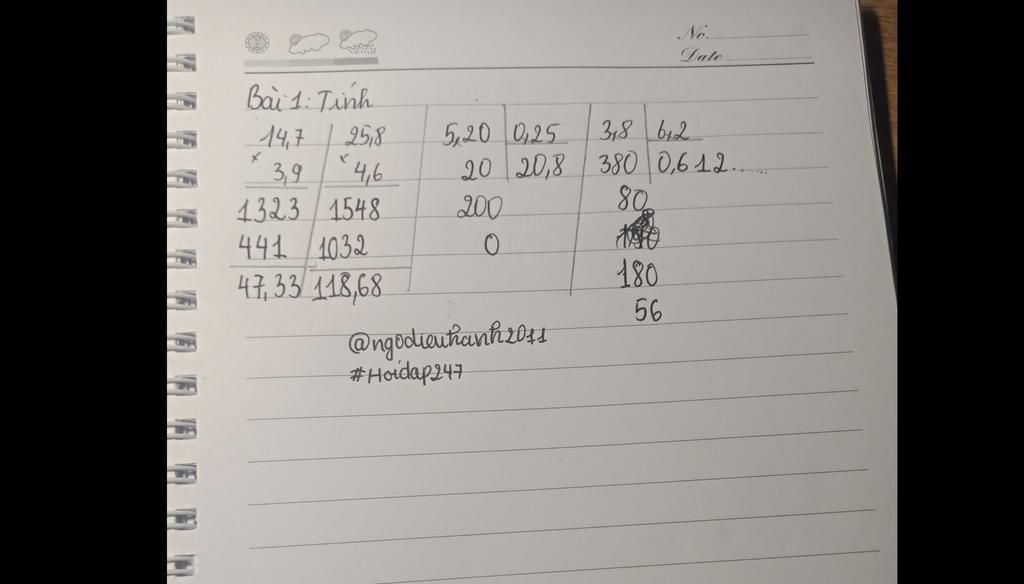 No.
Date
Bài 1: Tính
14,7 25,8 5,20 0,25 3,8 6,2
× 3,9 × 4,6 20 20,8 380 0,612......
1323 1548 200 80
441 1032 0
47,33 118,68 180
56
@ngodieuhanh2011
#Hoidap247